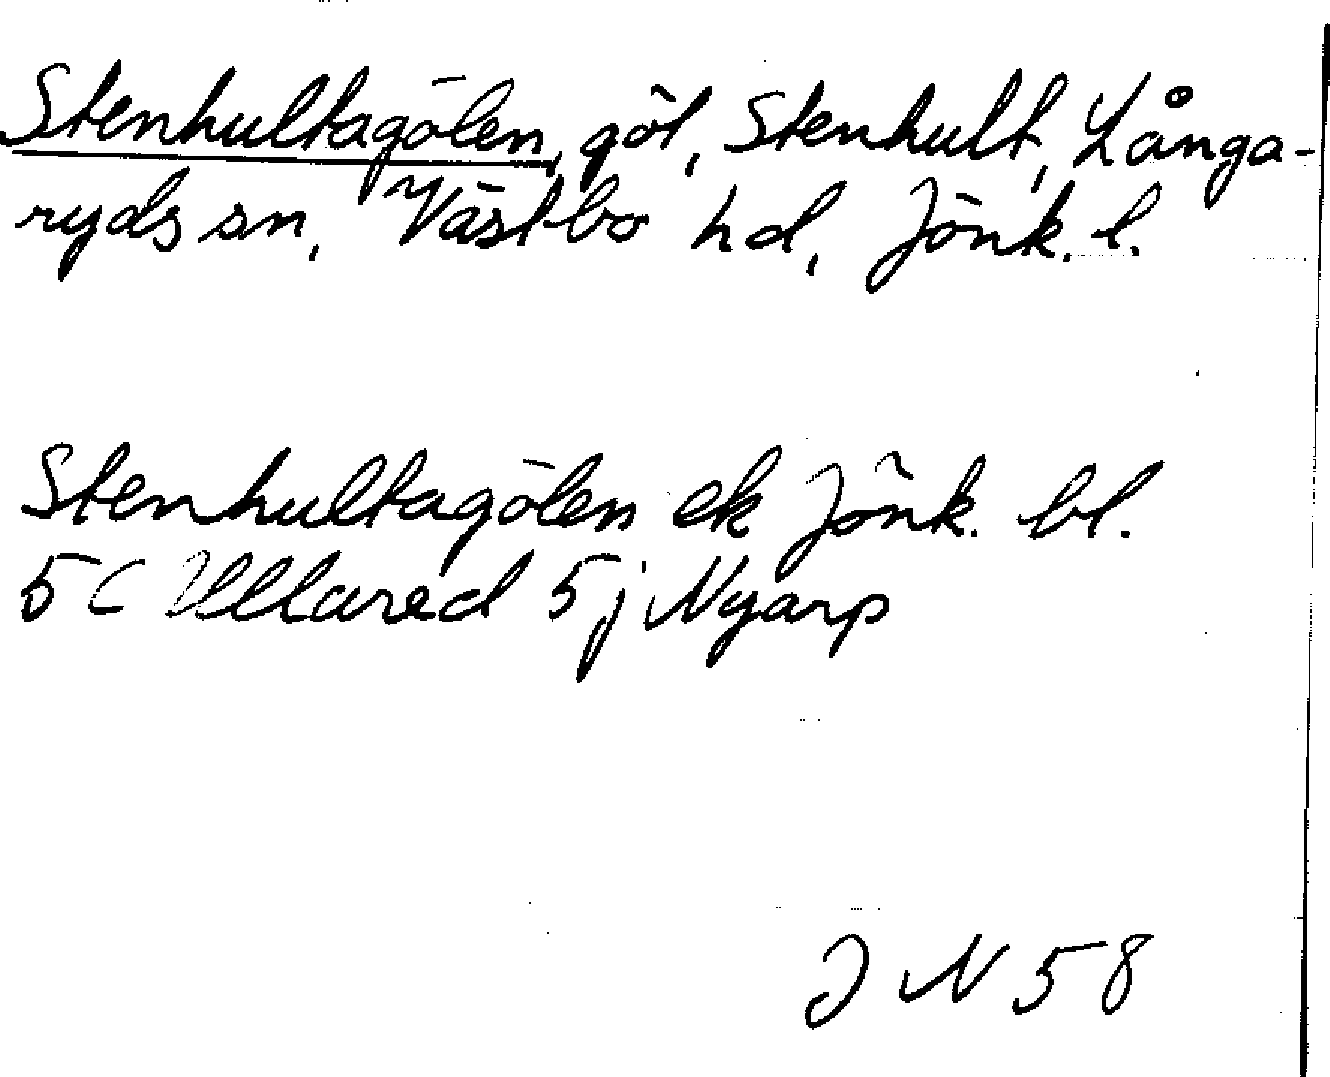 Stenhultagölen, göl, Stenhult, Långa-
ryds sn, Västbo hd, Jönk. l.
Stenhultagölen ek Jönk. bl.
5 C Ullared 5 j Nyarp
J N 58